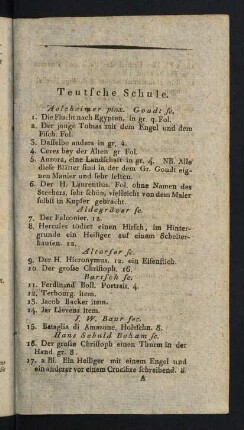 Teutsche Schule.
Aelzheimer pinx. Goudt sc.
1. Die Flucht nach Egypten, in gr. q. Fol.
2. Der junge Tobias mit dem Engel und dem
Fisch. Fol.
3. Dasselbe anders in gr. 4.
4. Ceres bey der Alten gr. Fol.
5. Aurora, eine Landschaft in gr. 4. NB. Alle
diese Blätter sind in der dem Gr. Goudt eig-
nen Manier und sehr selten.
6. Der H. Laurentius. Fol. ohne Namen des
Stechers, sehr schön, vielleicht von dem Maler
selbst in Kupfer gebracht.
Aldegräver sc.
7. Der Falconier. 12.
8. Hercules tödtet einen Hirsch, im Hinter-
grunde ein Heiliger auf einem Scheiter-
haufen. 12.
Altorfer sc.
9. Der H. Hieronymus. 12. ein Eisenstich.
10. Der grosse Christoph. 16.
Bartsch sc.
11. Ferdinand Boll. Portrait. 4.
12. Terbourg. item.
13. Jacob Backer item.
14. Jar Lievens item.
J. W. Baur fec.
15. Bataglia di Amazone, Holzschn. 8.
Hans Sebald Beham sc.
16. Der grosse Christoph einen Thurm in der
Hand gr. 8.
17. a Bll. Ein Heiliger mit einem Engel und
ein anderer vor einem Crucifixe schreibend. 8.
A